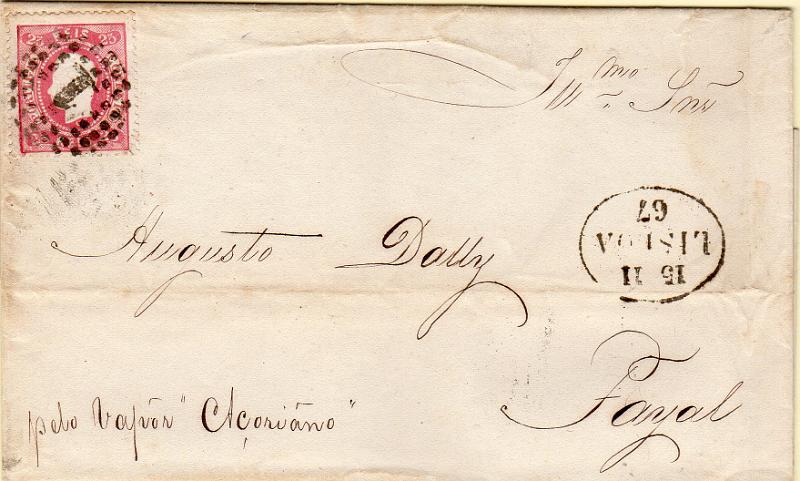 25 REIS 25
Illmo Snr
Augusto Dally
LISBOA
15 11
67
Fayal
pelo Vapôr "Açoriâno"